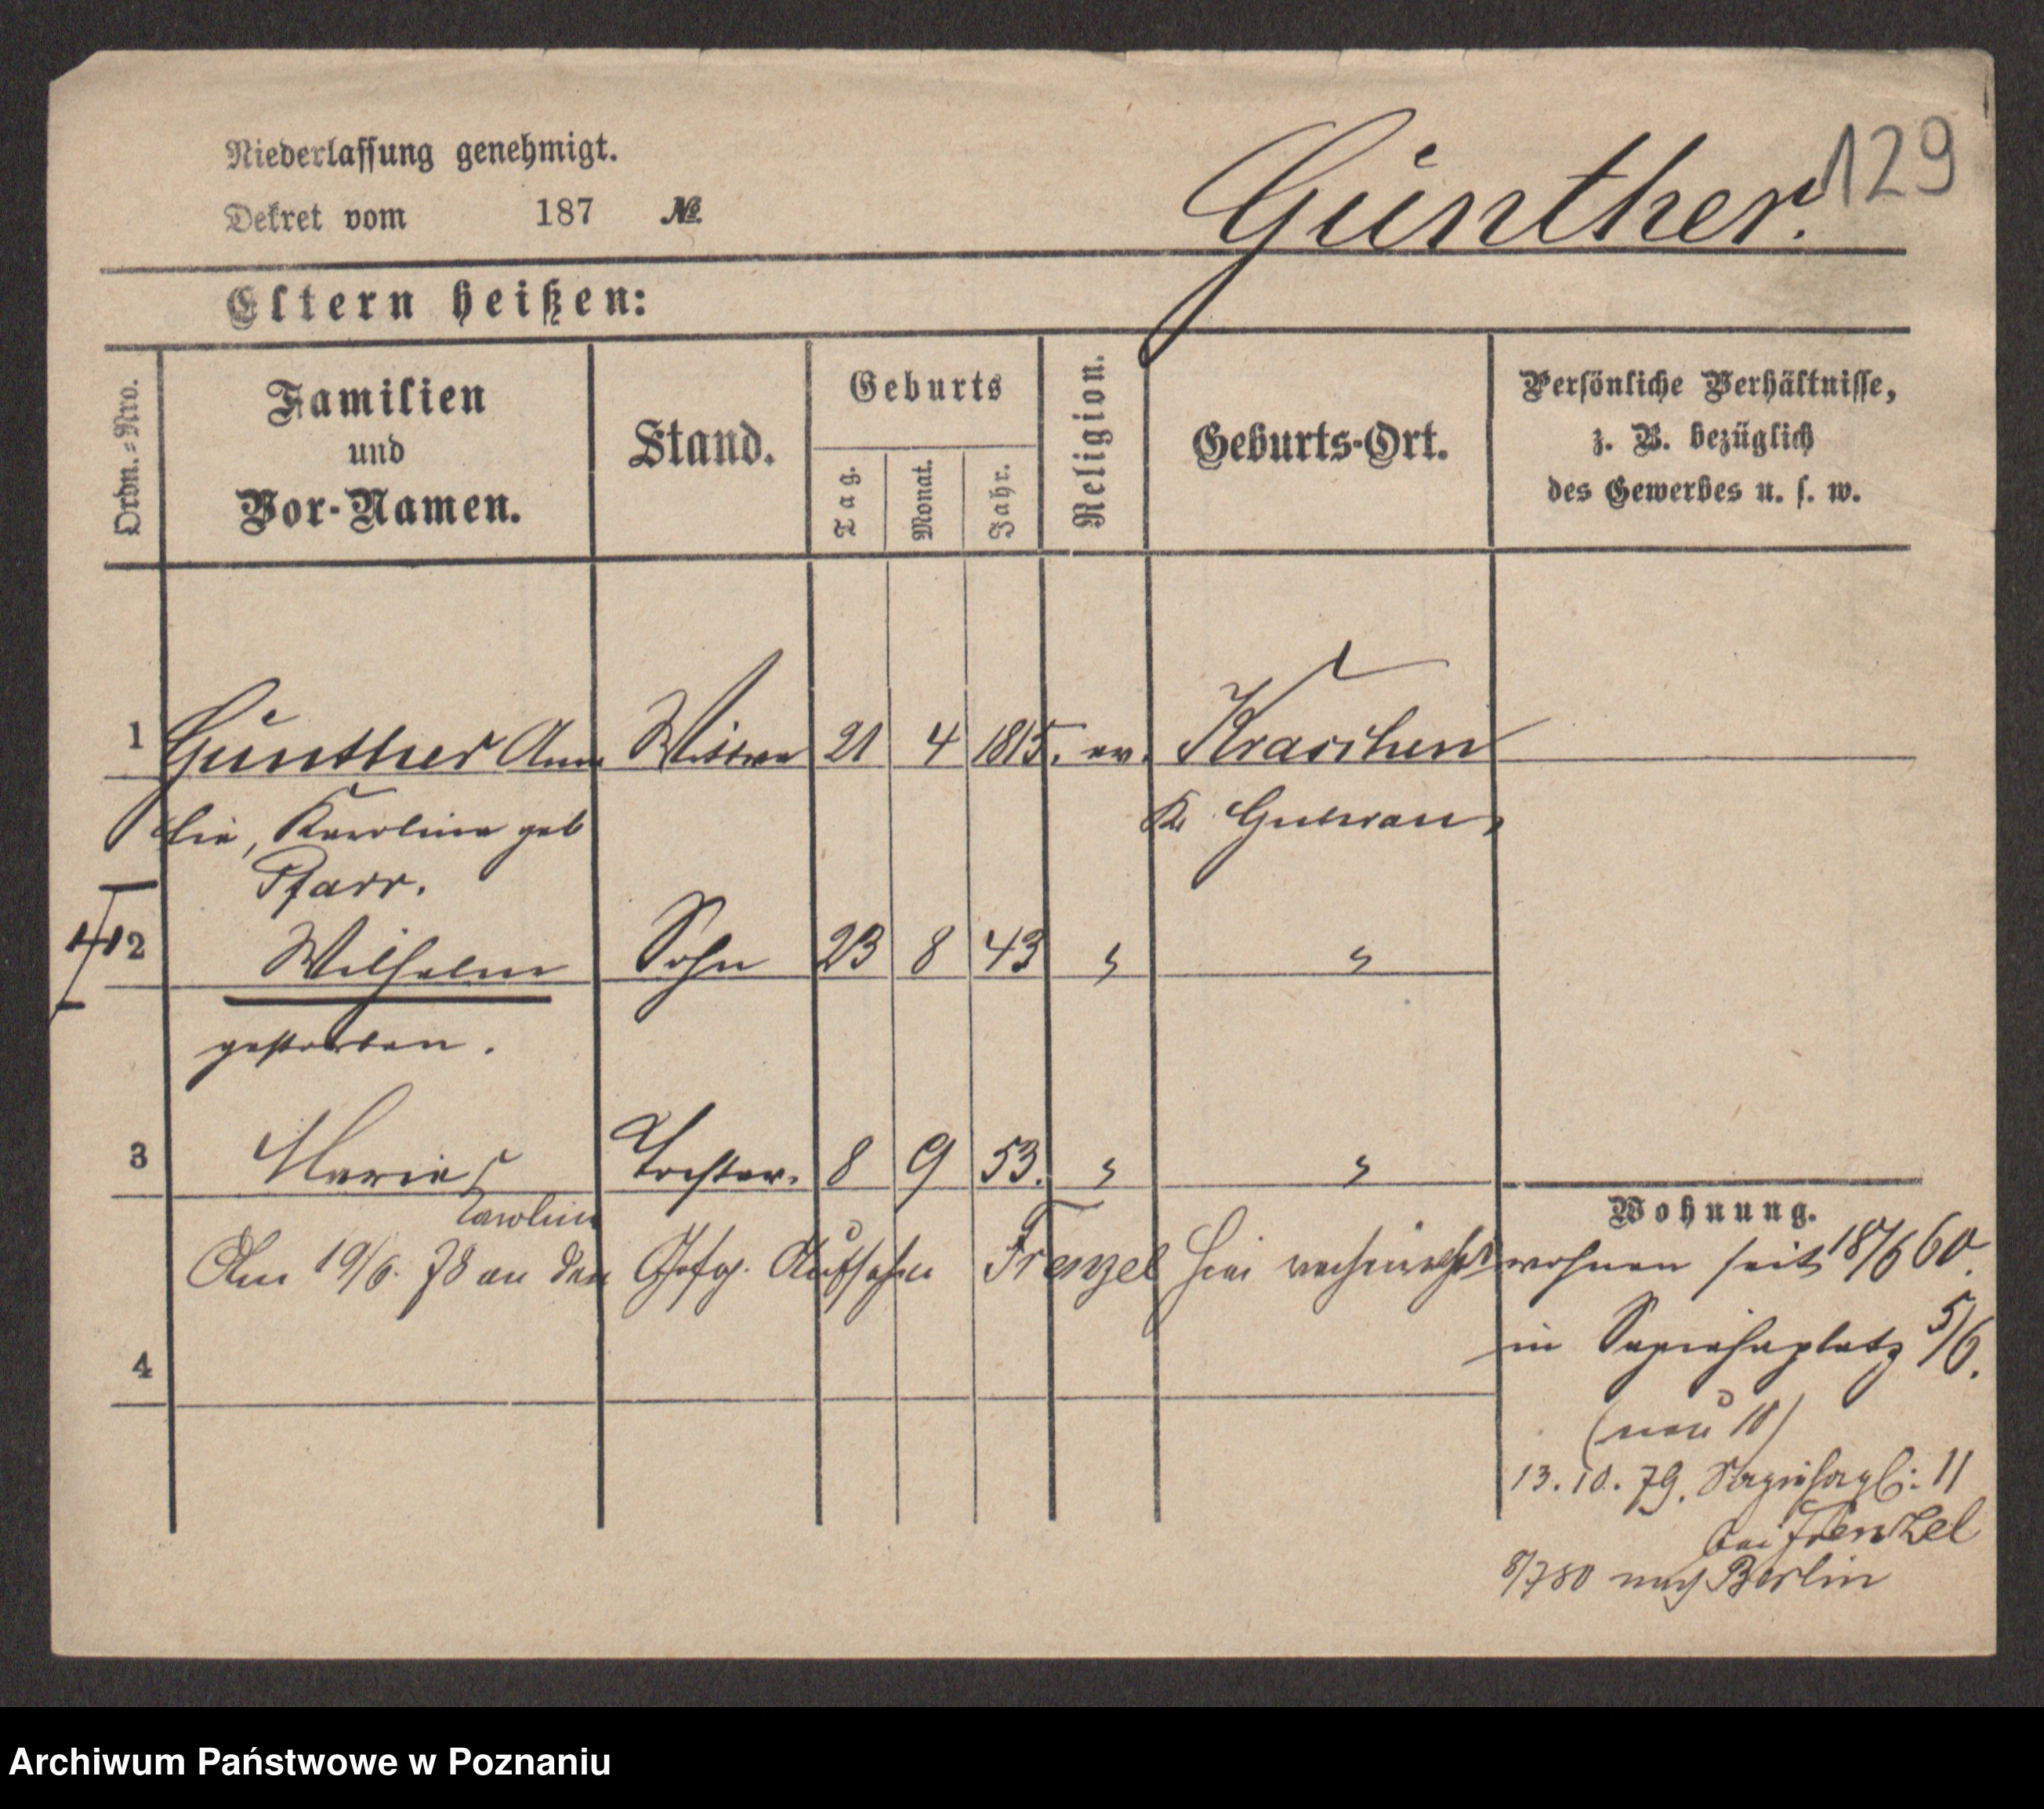 129
Günther.
Niederlassung genehmigt.
Dekret vom 187 №
Eltern heißen:
Ordn.-Nro. Familien und Vor-Namen. Stand. Geburts Tag. Monat. Jahr. Religion. Geburts-Ort. Persönliche Verhältnisse, z. B. bezüglich des Gewerbes u. s. w.
1 Günther Ama Wittwe 21 4 1815. ev. Kraschen
lie, Karoline geb Kr. Guhrau
Pfarr.
2 Wilhelm Sohn 23 8 43 " "
gestorben.
3 Marie Tochter. 8 9 53. " "
Karoline
Wohnung.
Am 19/6. 78 an den Frenzel hier verheirathet
wohnen seit 18/6 60.
in Sapiehaplatz 5/6.
4
(neu 10)
13. 10. 79. Sapiehapl: 11
bei Frenzel
8/7 80 nach Berlin
Archiwum Państwowe w Poznaniu